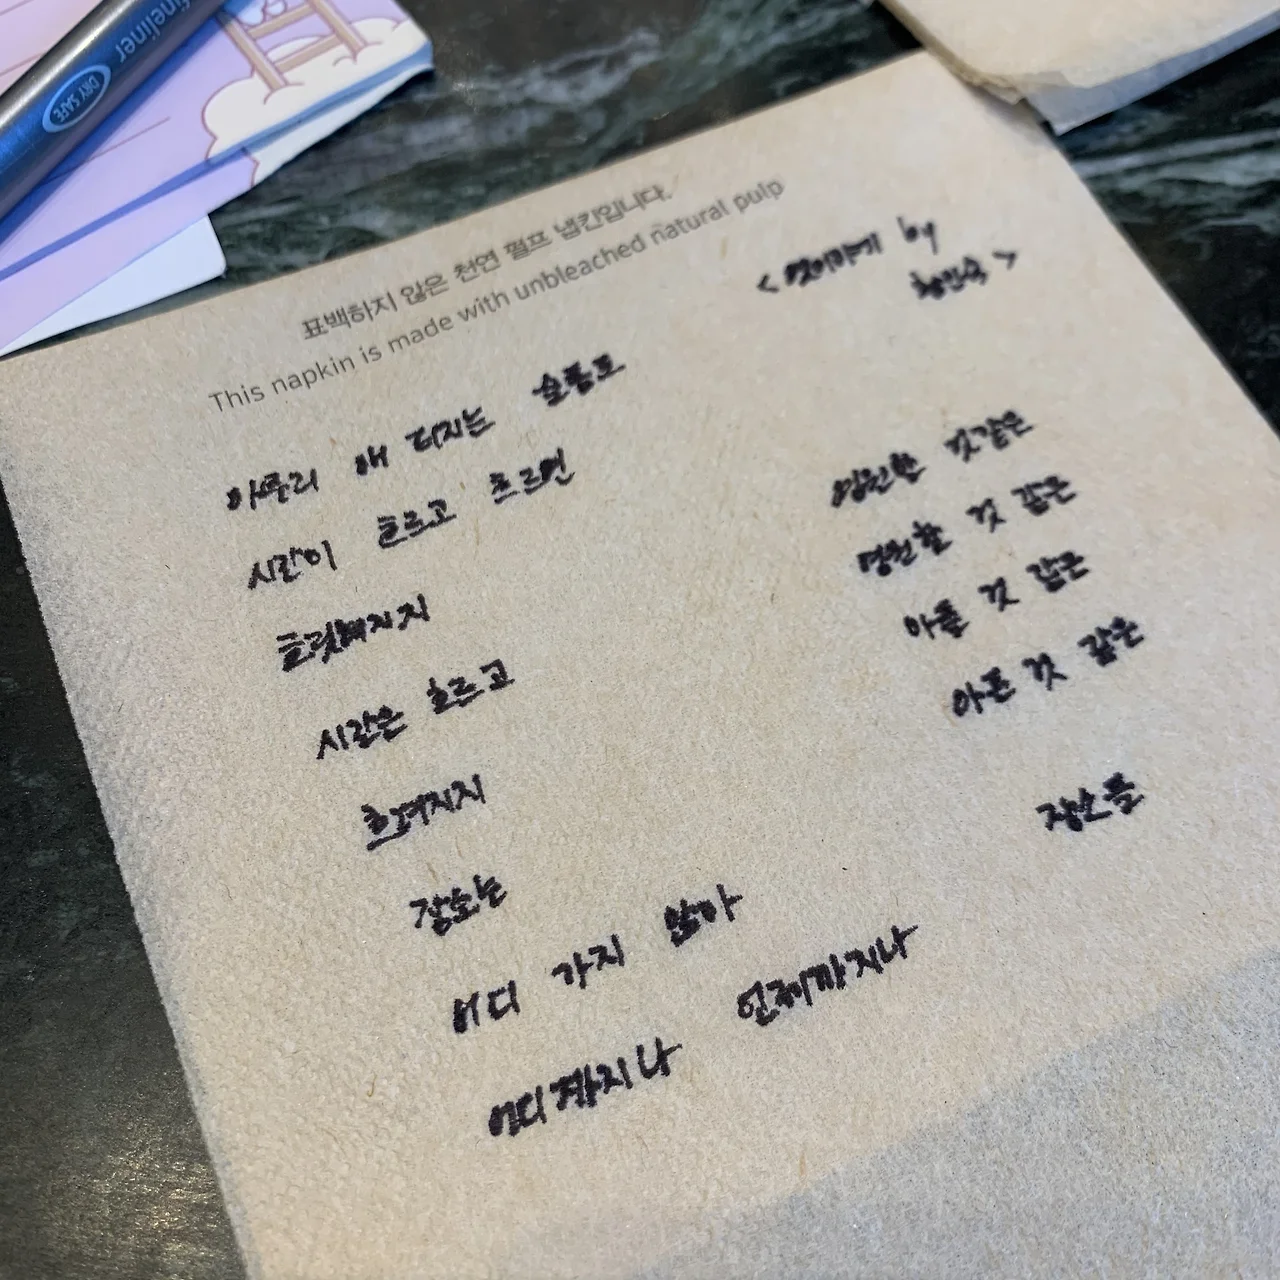 fineliner
DRY SAFE
표백하지 않은 천연 펄프 냅킨입니다.
This napkin is made with unbleached natural pulp
< 옛이야기 by
황인숙 >
아무리 애 터지는 슬픔도
시간이 흐르고 흐르면
흐릿해지지
시간은 흐르고
흐려지지
장소는
어디 가지 않아
어디까지나 언제까지나
영원할 것 같은
영원한 것 같은
아플 것 같은
아픈 것 같은
장소들